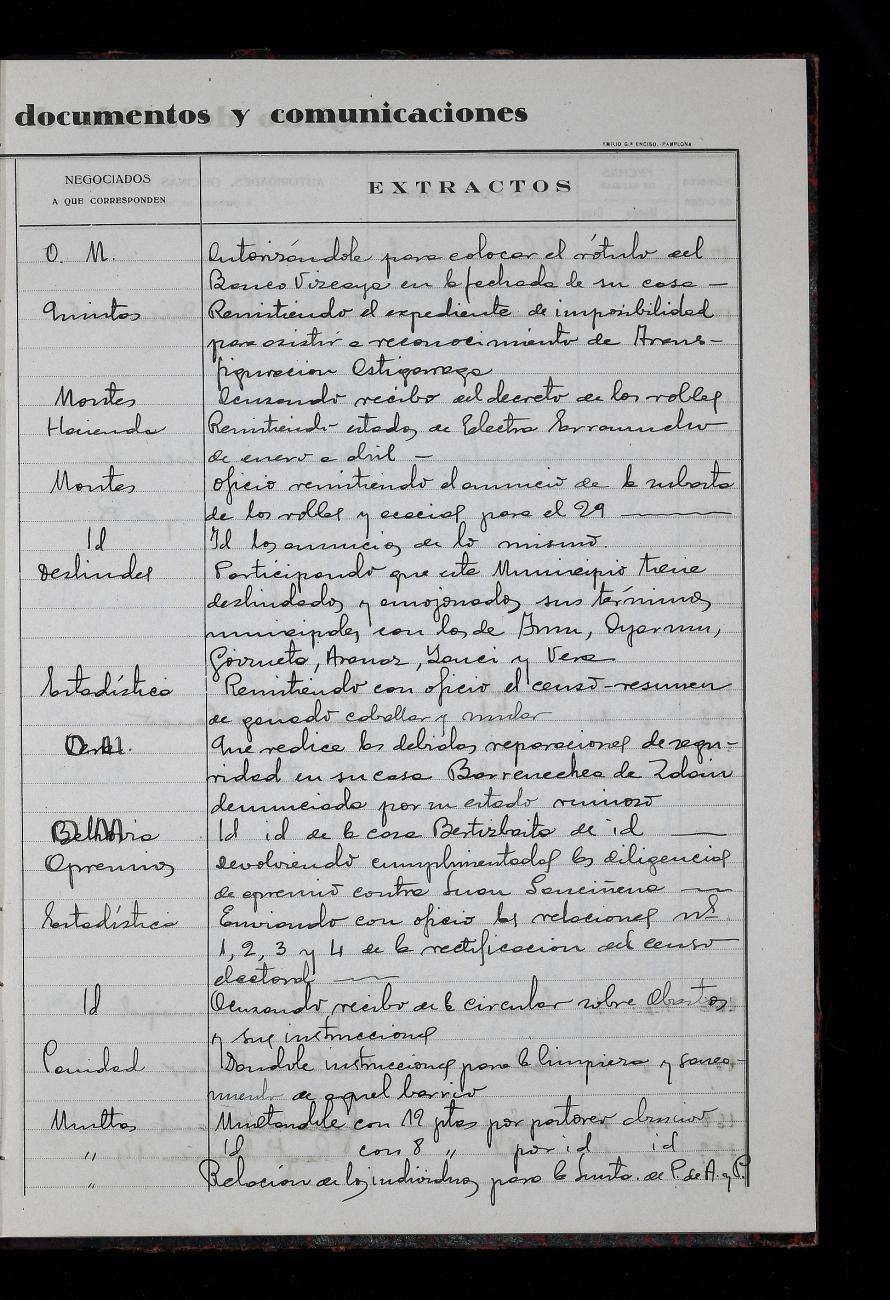 documentos y comunicaciones
EMILIO G.ª ENCISO.-PAMPLONA
NEGOCIADOS
A QUE CORRESPONDEN
EXTRACTOS
O. M. Autorizándole para colocar el rótulo del
Banco Vizcaya en la fachada de su casa —
Quintas Remitiendo el expediente de imposibilidad
para asistir a reconocimiento de Trans-
figuracion Astigarraga
Montes Acusando recibo del decreto de los robles
Hacienda Remitiendo estados de Electra
de enero a abril —
Montes Oficio remitiendo el anuncio de la subasta
de los robles y acacias para el 29 —
Id Id los anuncios de lo mismo.
Deslindes Participando que este Municipio tiene
deslindados y amojonados sus términos
municipales con los de Irun, Oyarzun,
Goizueta, Aranaz, Yanci y Vera
Estadística Remitiendo con oficio el censo-resumen
de ganado caballar y mular
Que realice las debidas reparaciones de segu-
ridad en su casa Barrenechea de Zalain
denunciada por su estado ruinoso
Id id de la casa de id —
Apremios Devolviendo cumplimentadas las diligencias
de apremio contra Juan Sanciñena —
Estadística Enviando con oficio las relaciones nºs
1, 2, 3 y 4 de la rectificacion del censo
electoral —
Id Acusando recibo de la circular sobre Abastos
y sus instrucciones
Sanidad Dandole instrucciones para la limpieza y sanea-
miento de aquel barrio
Multas Multandole con 19 ptas por pastoreo abusivo
" Id con 8 " por id id
" Relación de los individuos para la Junta. de P. de A. y P.